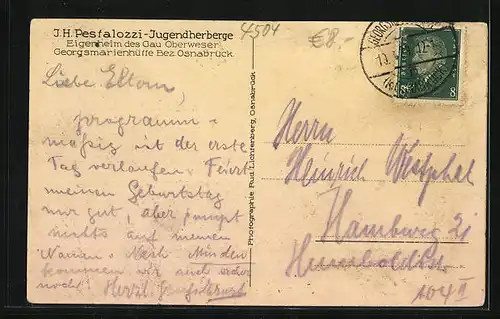 J.H. Pestalozzi-Jugendherberge
Eigenheim des Gau Oberweser
Georgsmarienhütte Bez. Osnabrück
4504
€8,-
8
8
Liebe Eltern,
programm-
mäßig ist der erste
Tag verlaufen. Feiert
meinen Geburtstag
nur gut, aber pumpt
nichts auf meinen
Namen. Nach Minden
kommen wir auch schon
noch! Herzl.
Photographie Paul Lichtenberg, Osnabrück
Herrn
Heinrich Westphal
Hamburg 21
Humboldtstr.
104 II